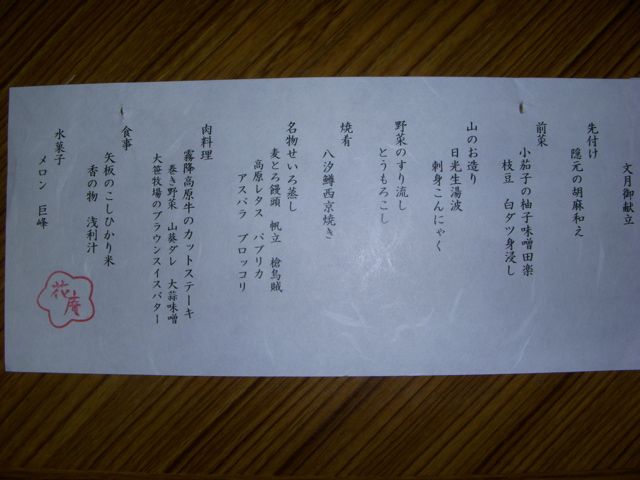 文月御献立
先付け
隠元の胡麻和え
前菜
小茄子の柚子味噌田楽
枝豆 白ダツ身浸し
山のお造り
日光生湯波
刺身こんにゃく
野菜のすり流し
とうもろこし
焼肴
八汐鱒西京焼き
名物せいろ蒸し
麦とろ饅頭 帆立 槍烏賊
高原レタス パプリカ
アスパラ ブロッコリ
肉料理
霧降高原牛のカットステーキ
巻き野菜 山葵ダレ 大蒜味噌
大笹牧場のブラウンスイスバター
食事
矢板のこしひかり米
香の物 浅利汁
水菓子
メロン 巨峰
花庵